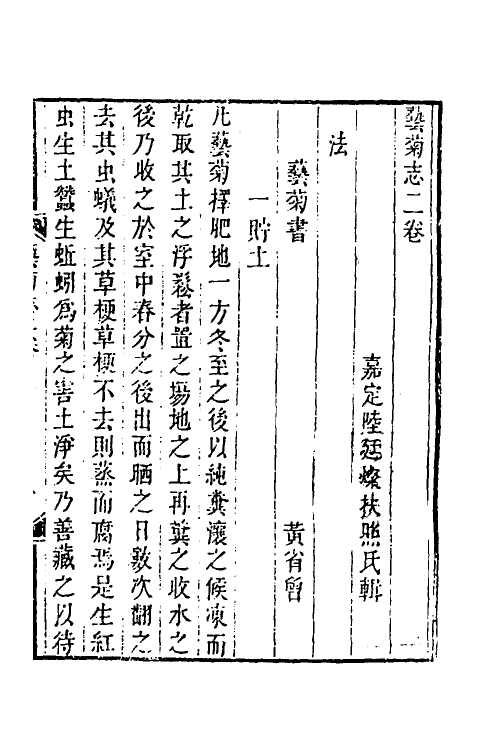 藝菊志二卷
嘉定陸廷燦扶照氏輯
法
藝菊書
黃省曾
一貯土
凡藝菊擇肥地一方冬至之後以純糞瀼之候凍而
乾取其土之浮鬆者置之塲地之上再糞之收水之
後乃收之於室中春分之後出而晒之日數次翻之
去其虫蟻及其草梗草梗不去則蒸而腐焉是生紅
虫生土蠶生蚯蚓爲菊之害土淨矣乃善藏之以待